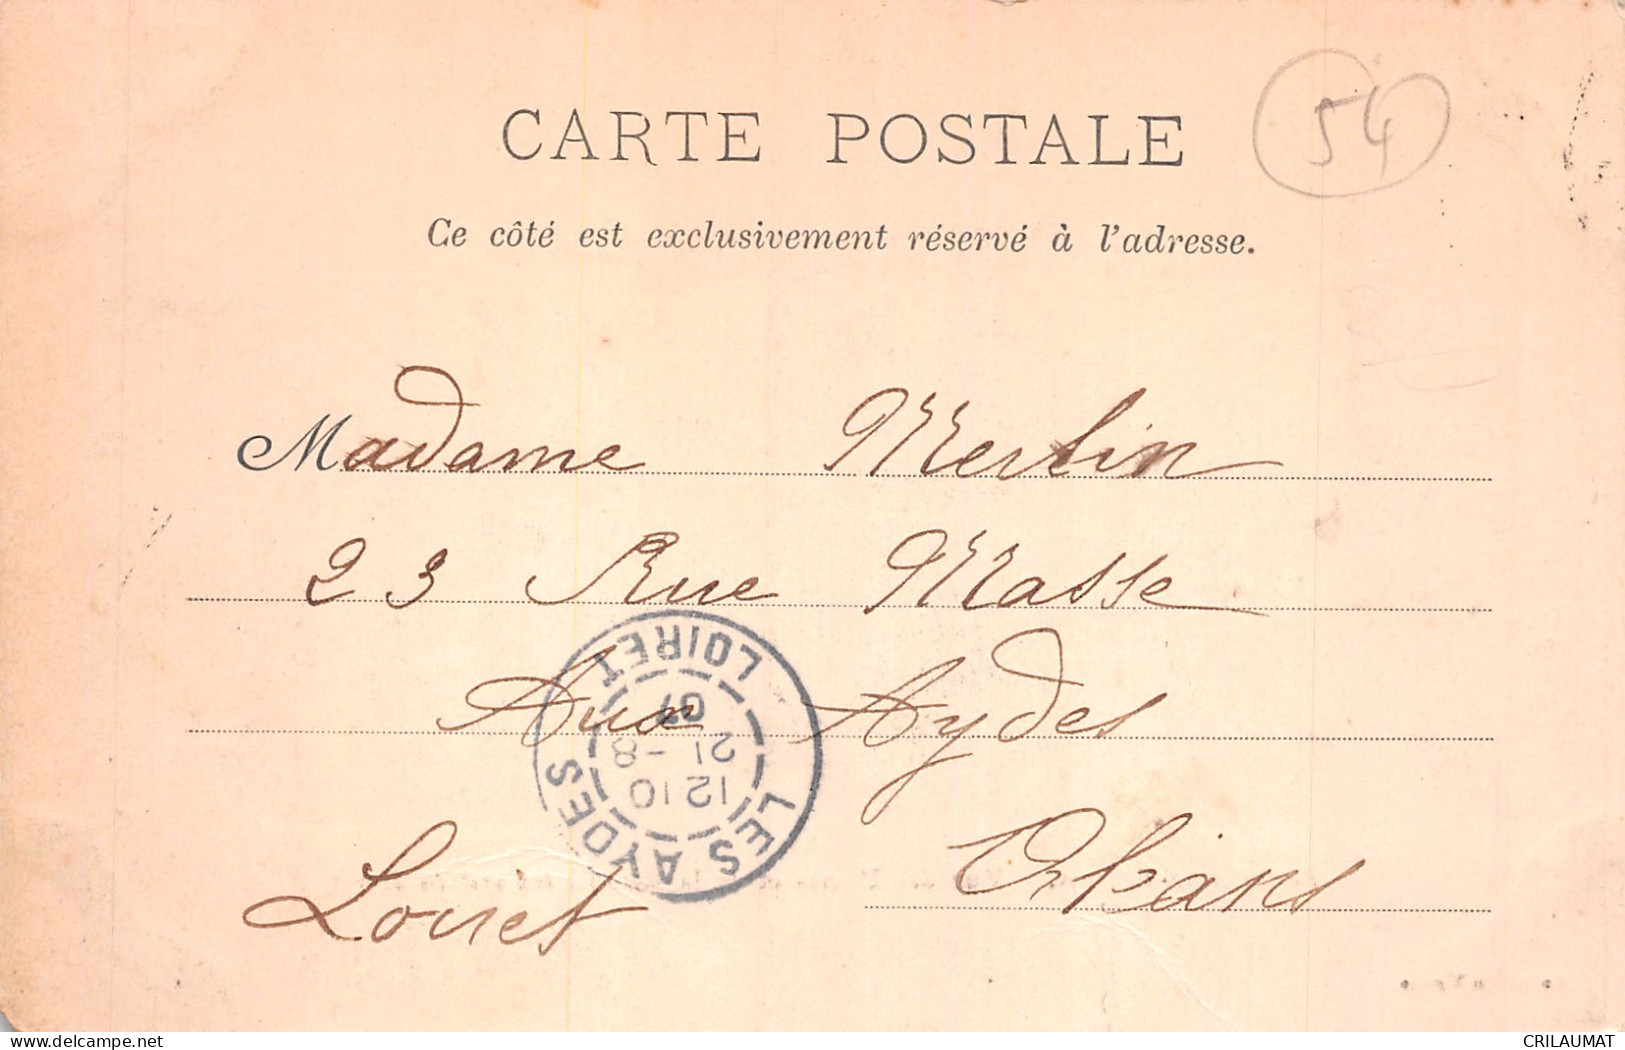 CARTE POSTALE
54
Ce côté est exclusivement réservé à l'adresse.
Madame Merlin
23 Rue Masse
Aux Aydes
Orléans
Loiret
LES AYDES
12 10
21 -8
07
LOIRET
www.delcampe.net
CRILAUMAT